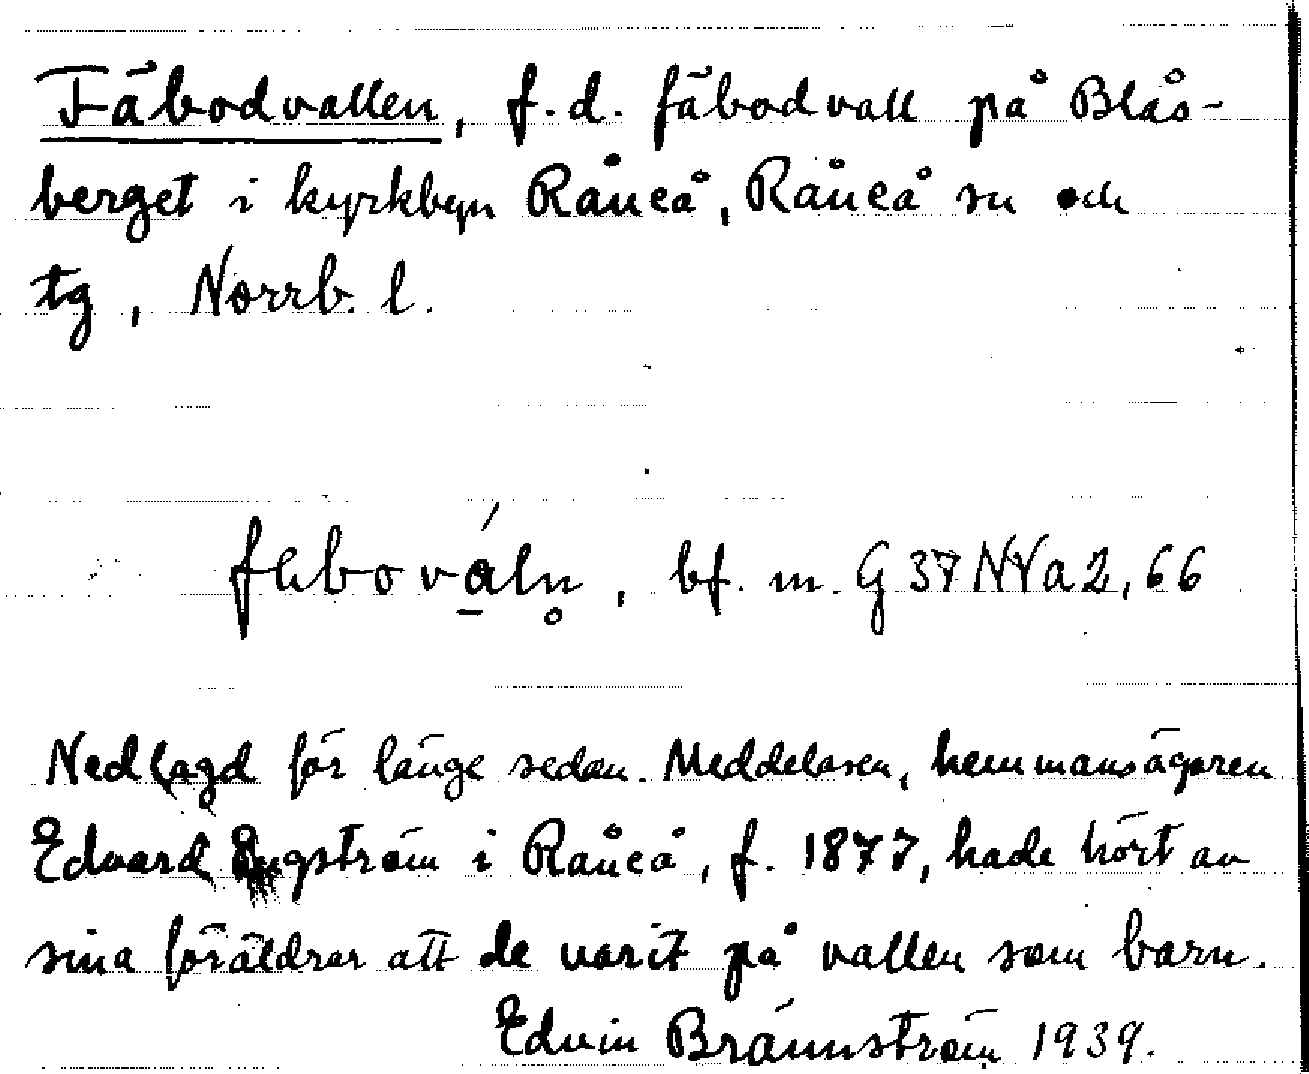 Fäbodvallen, f.d. fäbodvall på Blås-
berget i kyrkbyn Råneå, Råneå sn och
tg, Norrb. l.
bf. m. G 37 NYa2, 66
Nedlagd för länge sedan. Meddelaren, hemmansägaren
Edvard Engström i Råneå, f. 1877, hade hört av
sina föräldrar att de varit på vallen som barn.
Edvin Brännström 1939.